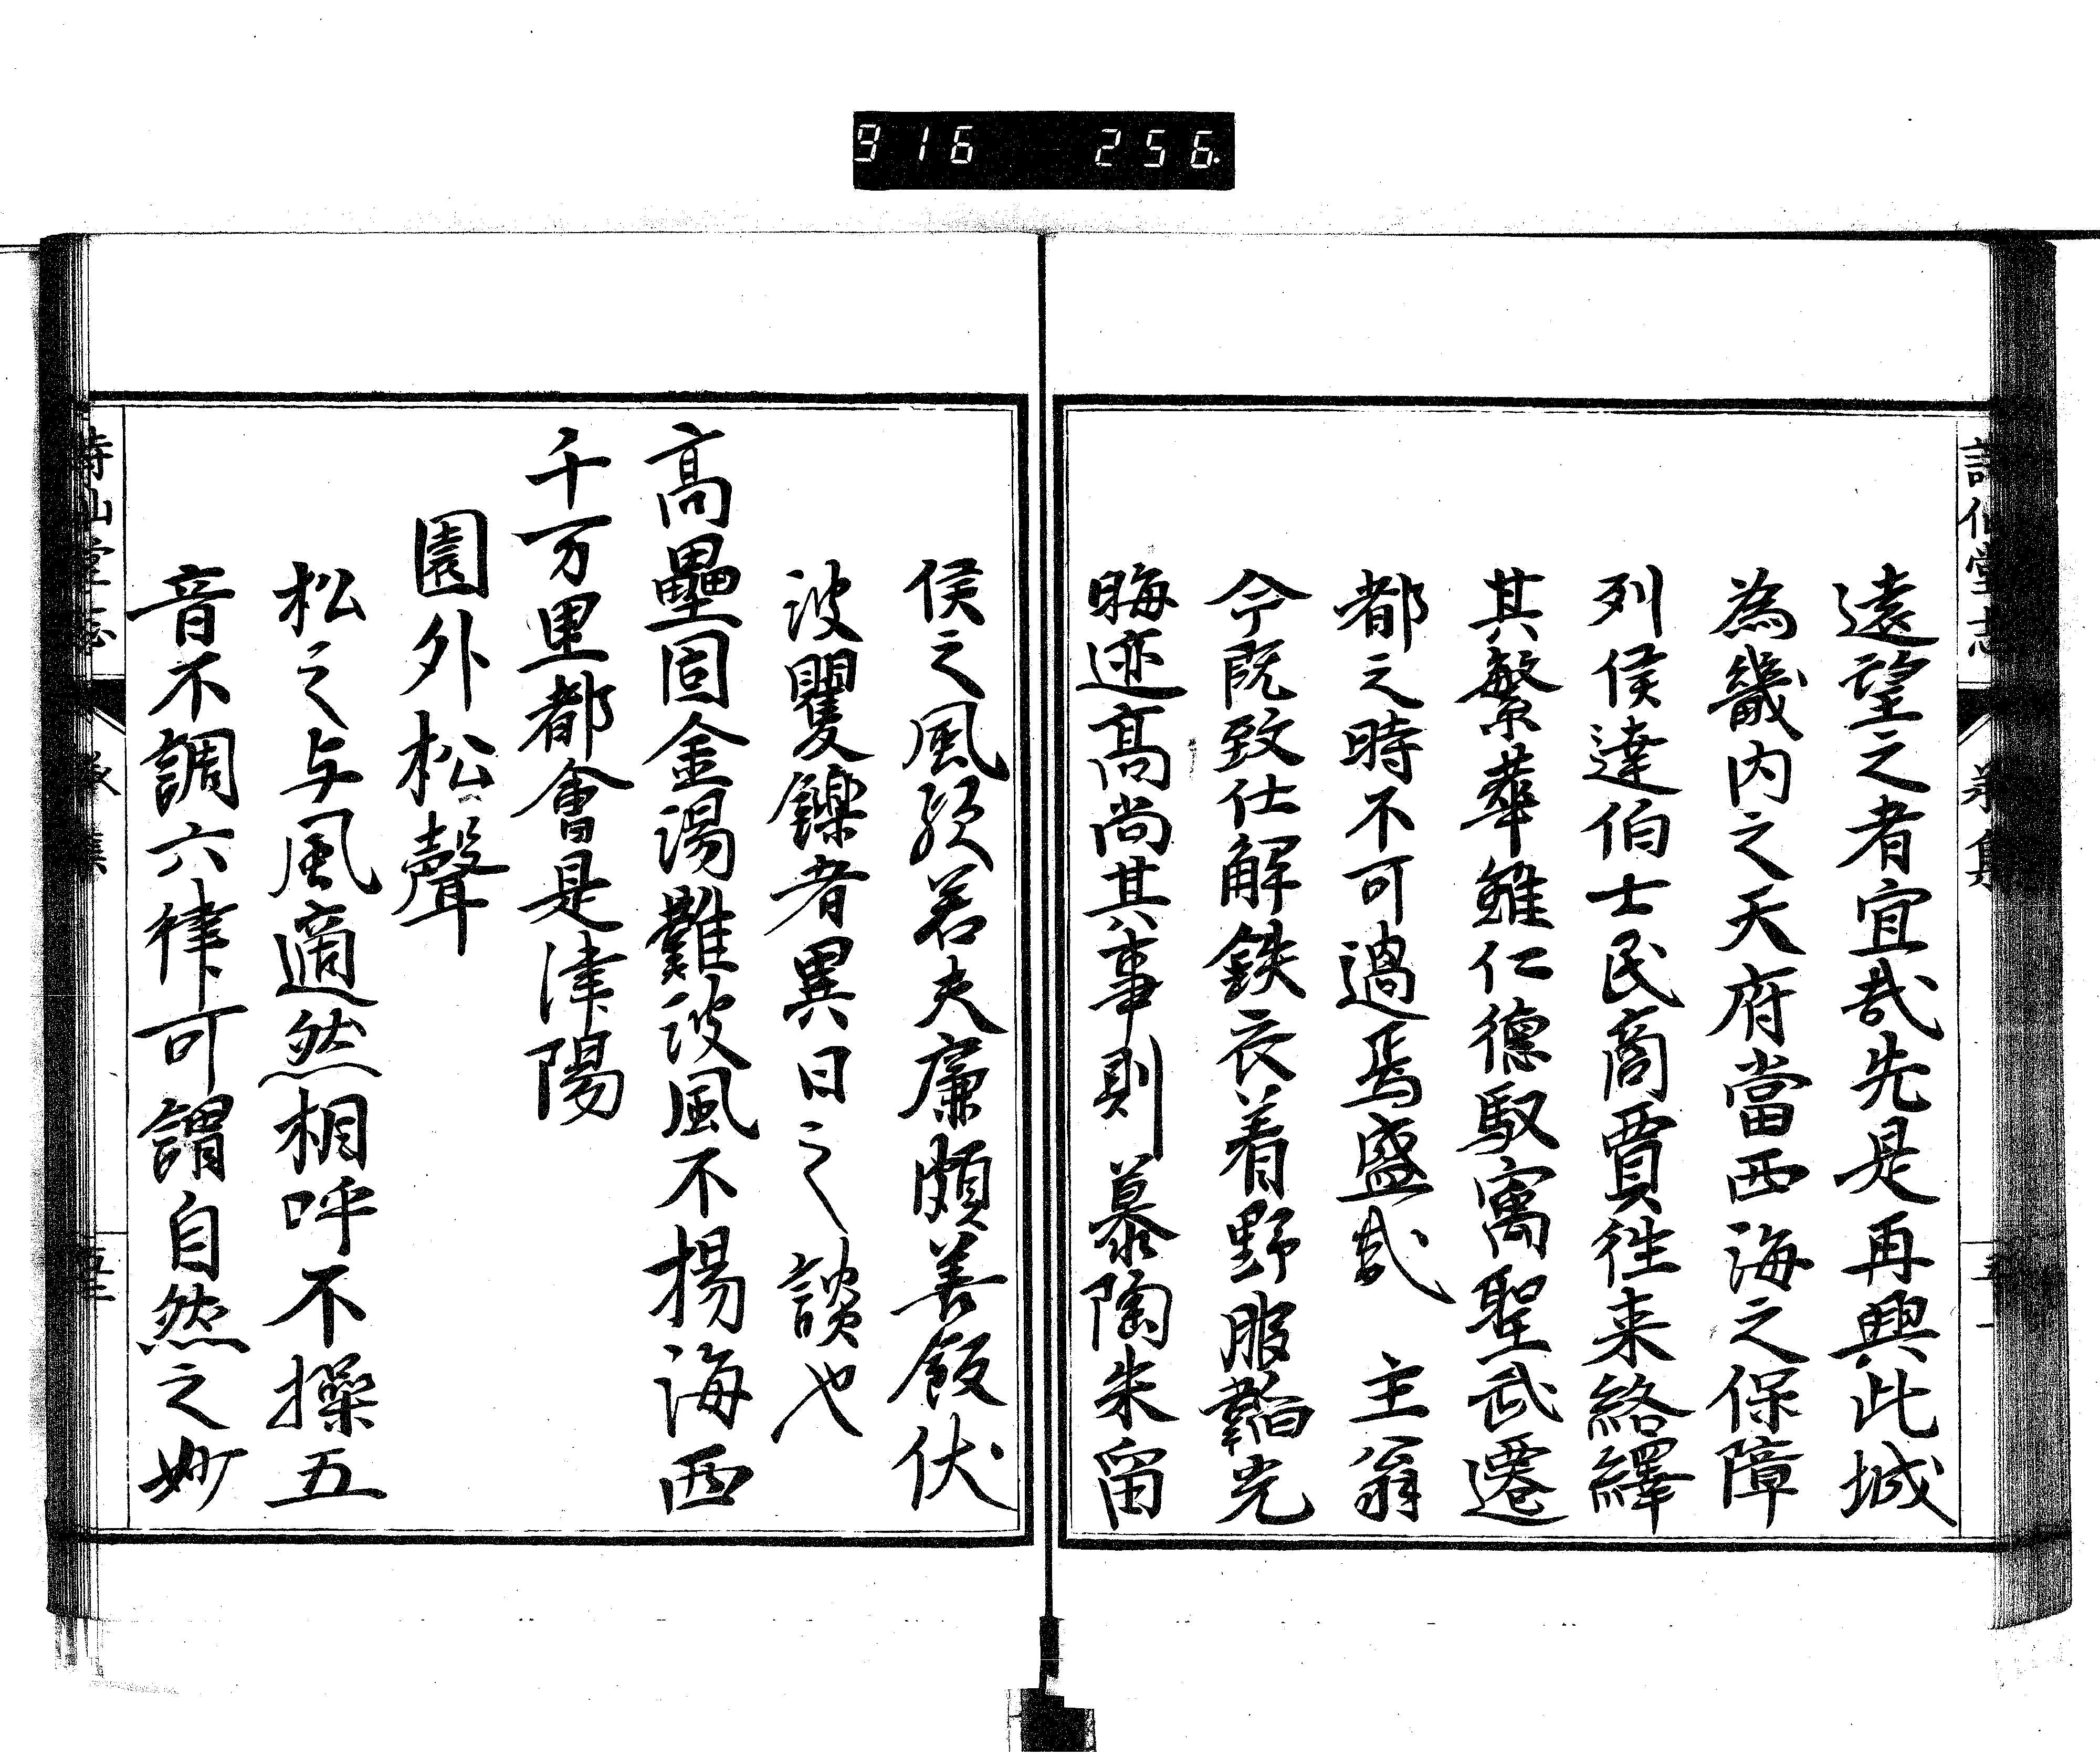 916 256
遠望之者宜哉先是再興此城
為畿内之天府當西海之保障
列侯達伯士民商賈徃来絡繹
其繁華雖仁德馭寓聖武遷
都之時不可過焉盛哉　主翁
今既致仕解鉄衣着野服韜光
晦迹高尚其事則慕陶朱留
侯之風欤若夫廉頗善飯伏
波矍鑠者異日之談也
高壘固金湯難波風不揚海西
千万里都會是津陽
園外松聲
松之与風適然相呼不操五
音不調六律可謂自然之妙